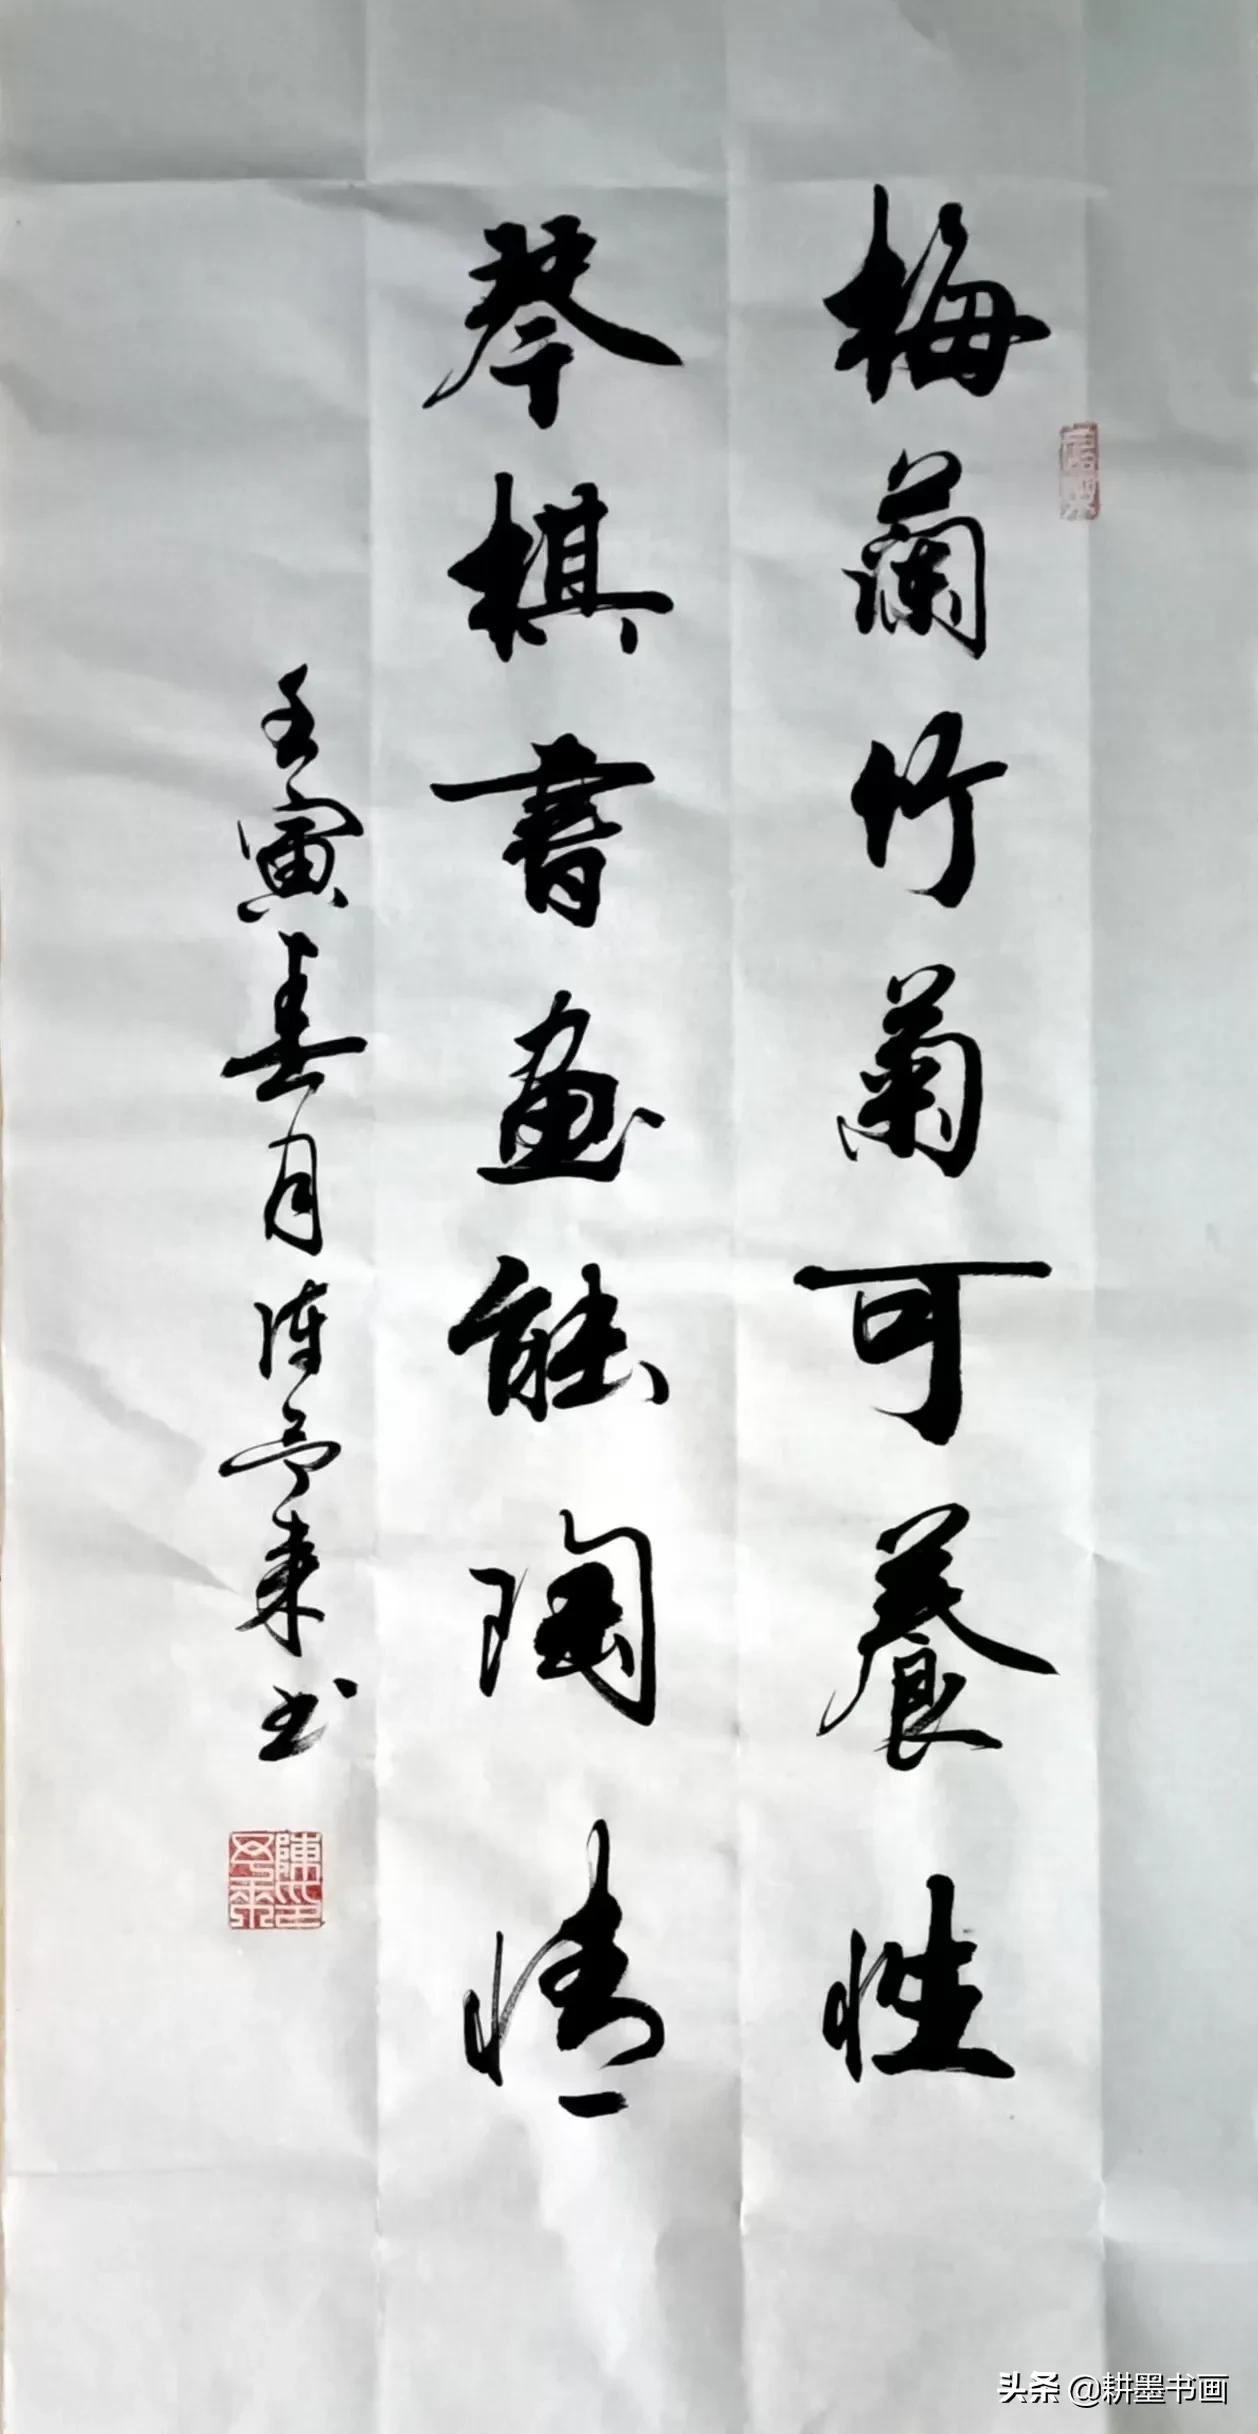 梅蘭竹菊可養性
琴棋書畫能陶情
壬寅春月陳學來书
头条 @耕墨书画